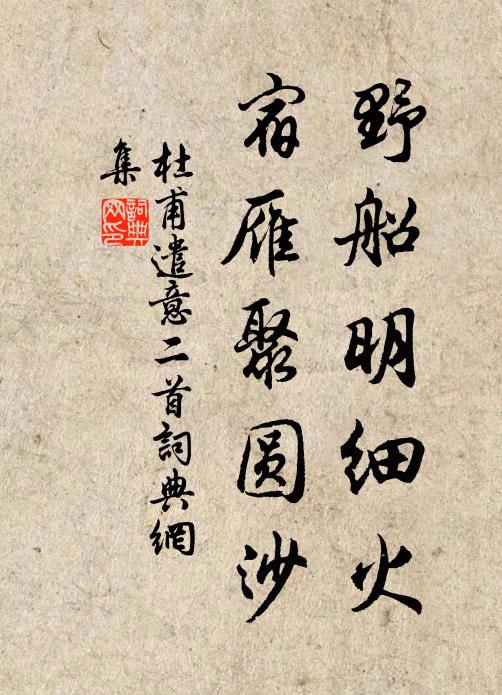 野船明细火
宿雁聚圆沙
杜甫遣意二首詞典網
集
詞典
网印